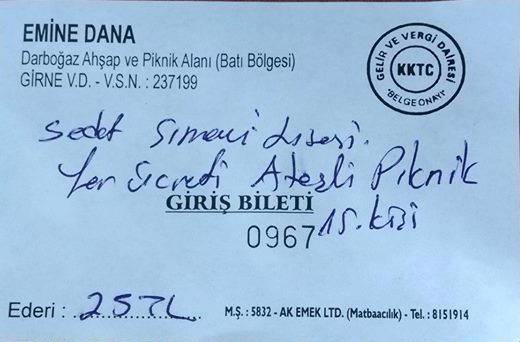 EMİNE DANA
Darboğaz Ahşap ve Piknik Alanı (Batı Bölgesi)
GİRNE V.D. - V.S.N. : 237199
GELİR VE VERGİ DAİRESİ
KKTC
"BELGE ONAYI"
Sedat Simavi Lisesi.
Yer ücreti Ateşli Piknik
GİRİŞ BİLETİ
15.kişi
0967
Ederi : 25TL.
M.Ş. : 5832 - AK EMEK LTD. (Matbaacılık) - Tel. : 8151914